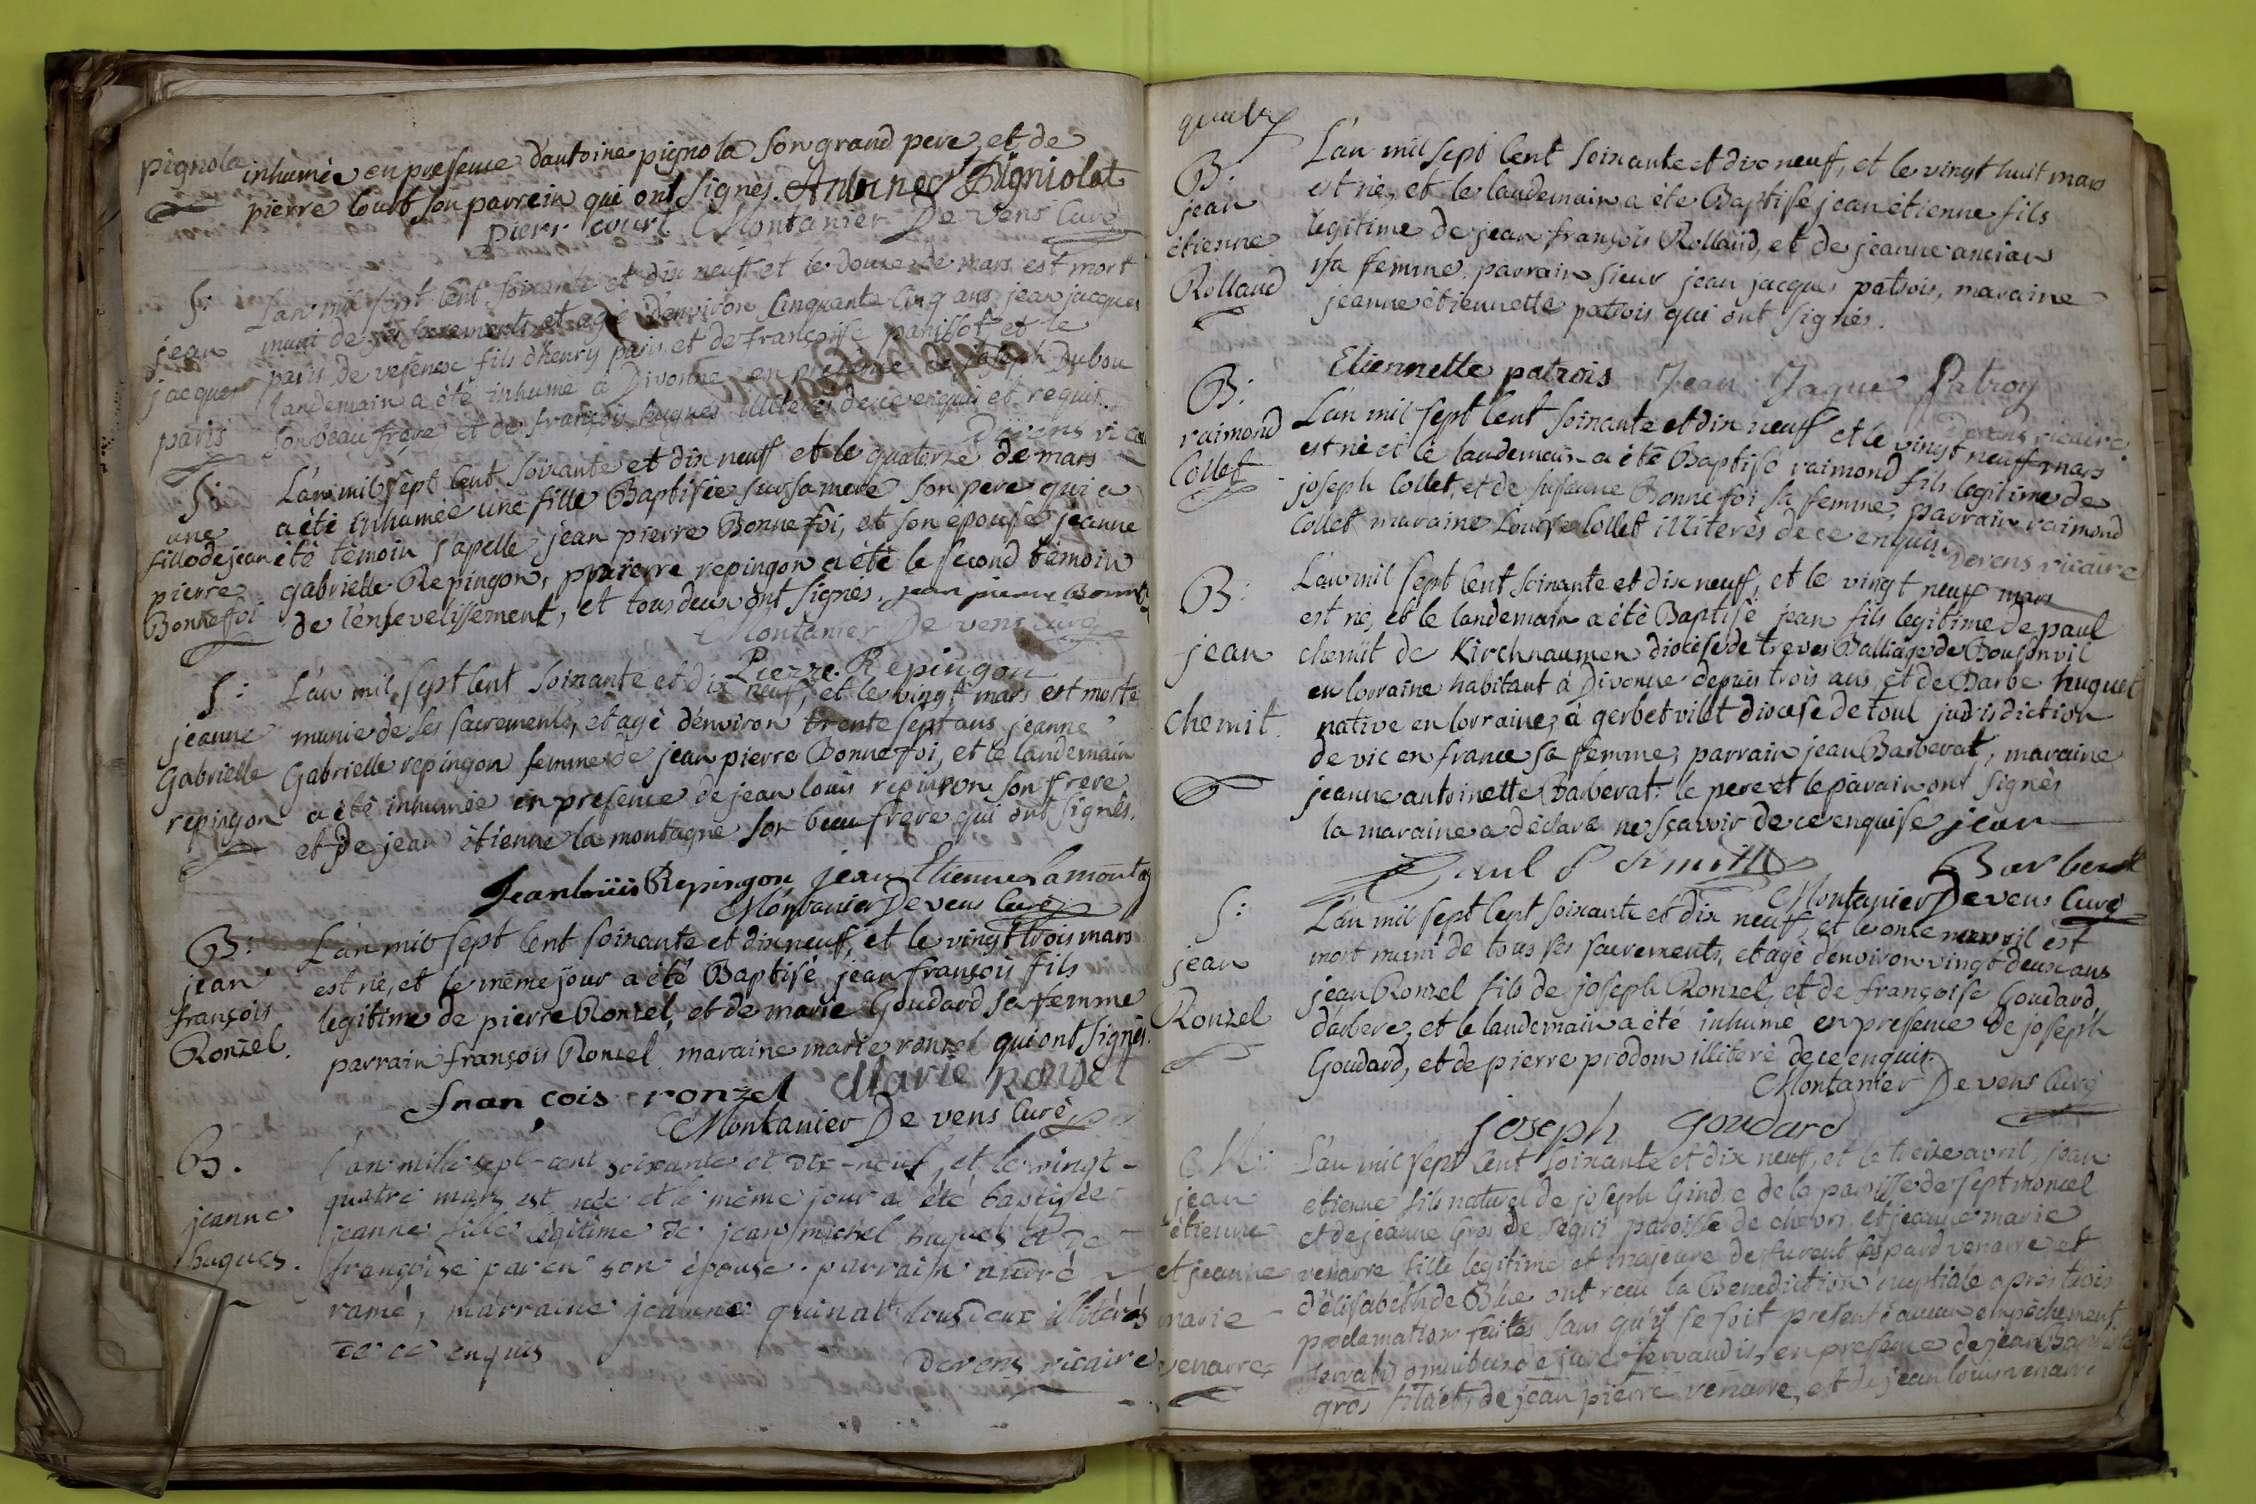 pignola inhumée en presence d'antoine pignola son grand pere, et de
pierre court son parrein qui ont signès. Antoine Pigniolat
pierr court Montanier De Vens Curé
S:
jean
jacques
paris
L'an mil sept cent soixante et dix neuf et le douze de mars est mort
muni de ses sacrements et agé d'environ cinquante cinq ans jean jacques
paris de vesenex fils d'henry paris et de françoise panissot et le
landemain a été inhumé a Divonne en presence de joseph Dubou
son beau frere et de françois hugues illiterés de ce enquis et requis.
Derens vicai
S:
une
fille de jean
pierre
Bonnefoi
L'an mil sept cent soixante et dix neuf et le quatorze de mars
a été inhumée une fille Baptisée sur sa mere son pere qui a
été témoin s'apelle jean pierre Bonnefoi, et son épouse jeanne
gabrielle Repingon, pierre repingon a été le second témoin
de l'ensevelissement, et tous deux ont signés. jean pierre Bonnef
Montanier De vens curé
Pierre Repingon
S:
jeanne
Gabrielle
repingon
L'an mil sept cent soixante et dix neuf, et le vingt mars est morte
munie de ses sacrements, et agé d'environ trente sept ans jeanne
Gabrielle repingon femme de jean pierre Bonnefoi, et le landemain
a été inhumée en presence de jean louis repingon son frere
et de jean étienne la montagne son beau frere qui ont signés.
Jean louiis Repingon jean Etienne Lamonta
Montanier De vens Curé
B:
jean
françois
Ronzel.
L'an mil sept cent soixante et dix neuf, et le vingt trois mars
est né, et le même jour a été Baptisé jean françois fils
legitime de pierre Ronzel, et de marie Goudard sa femme
parrain françois Ronzel maraine marie ronzel qui ont signés.
Francois ronzel Marie Ronzel
Montanier De vens Curé
B.
jeanne
hugues.
l'an mille sept-cent soixante et dix-neuf, et le vingt-
quatre mars est née et le même jour a été baptisée
jeanne fille légitime de jean michel hugues et de
françoise paren son épouse. parrain andré
ramé, marraine jeanne quinat tous deux illitérés
de ce enquis
Derens vicaire
quatre
B:
jean
étienne
Rolland
L'an mil sept cent soixante et dix neuf, et le vingt huit mars
est né, et le landemain a été Baptisé jean étienne fils
legitime de jean françois Rolland, et de jeanne ancian
sa femme. parrain sieur jean jacques patrois, maraine
jeanne étiennette patrois qui ont signés.
Etiennette patrois Jean Jaques Patroy
Derens vicaire
B:
raimond
Collet
L'an mil sept cent soixante et dix neuf et le vingt neuf mars
est né et le landemain a été Baptisé raimond fils legitime de
joseph Collet, et de susanne Bonnefoi sa femme, parrain raimond
Collet maraine Louise Collet illiterés de ce enquis. Derens vicaire
B:
jean
chemit.
L'an mil sept cent soixante et dix neuf, et le vingt neuf mars
est né, et le landemain a été Baptisé jean fils legitime de paul
chemit de Kirchnaumen diocèse de treves Balliage de Bousonvil
en lorraine habitant à Divonne depuis trois ans, et de Barbe huguet
native en lorraine, à gerbetvilet diocese de toul jurisdiction
de vic en france sa femme, parrain jean Barberat, maraine
jeanne antoinette Barberat. le pere et le parain ont signés
la maraine a déclaré ne sçavoir de ce enquise jean
Paul Barbera
Montanier De vens Curé
S:
jean
Ronzel
L'an mil sept cent soixante et dix neuf, et le onze avril est
mort muni de tous ses sacrements, et agé d'environ vingt deux ans
jean Ronzel fils de joseph Ronzel, et de françoise Goudard,
d'arbere, et le landemain a été inhumé en presence de joseph
Goudard, et de pierre prodom illiteré de ce enquis.
Montanier De vens Curé
joseph goudard
jean
étienne
et jeanne
marie
venarre
L'an mil sept cent soixante et dix neuf, et le treize avril, jean
étienne fils naturel de joseph Gindre de la paroisse de septmoncel
et de jeanne Gros de segni paroisse de chevri, et jeanne marie
venarre fille legitime et majeure de furent Gaspard venarre et
d'élisabeth de Blue ont reçu la Benediction nuptiale apres trois
proclamations faites sans qu'il se soit presenté aucun empêchement
servatis omnibus de jure servandis, en presence de jean Baptiste
gros et de jean pierre venarre, et de jean louis venarre